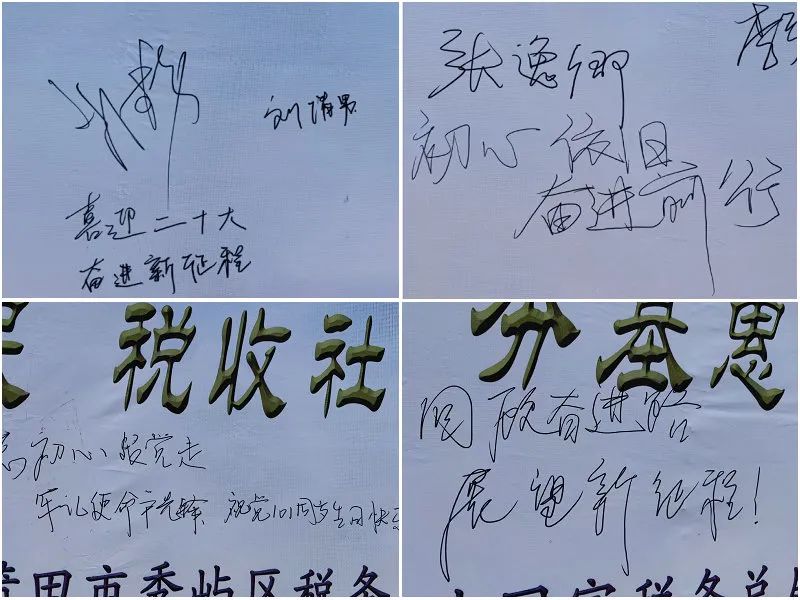 刘倩男
喜迎二十大
奋进新征程
张逸卿
初心依旧
奋进前行
税收社
初心跟党走
牢记使命 祝党101周岁生日快
莆田市秀屿区税务
分基思
回顾奋进路
展望新征程!
国家税务总局